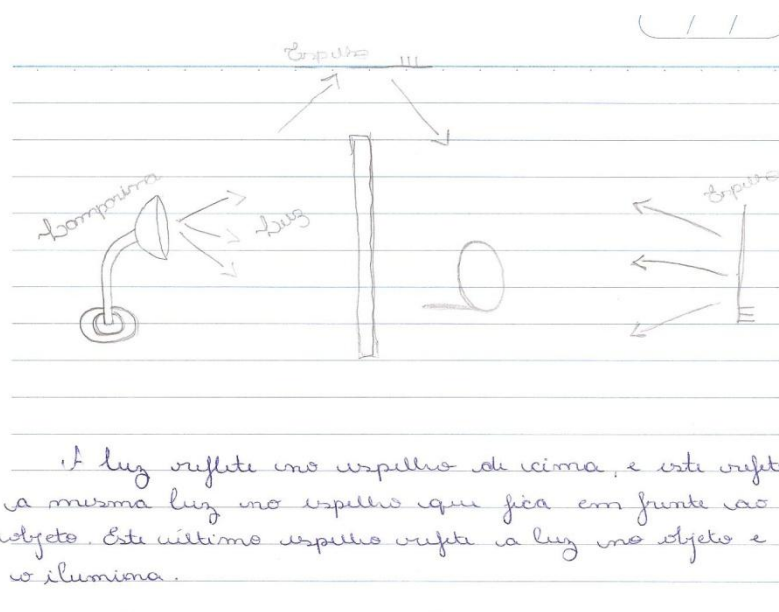 Espelho
Lamparina
Luz
Espelho
A luz reflete no espelho de cima, e este reflet
a mesma luz no espelho que fica em frente ao
objeto. Este último espelho reflete a luz no objeto e
o ilumina.